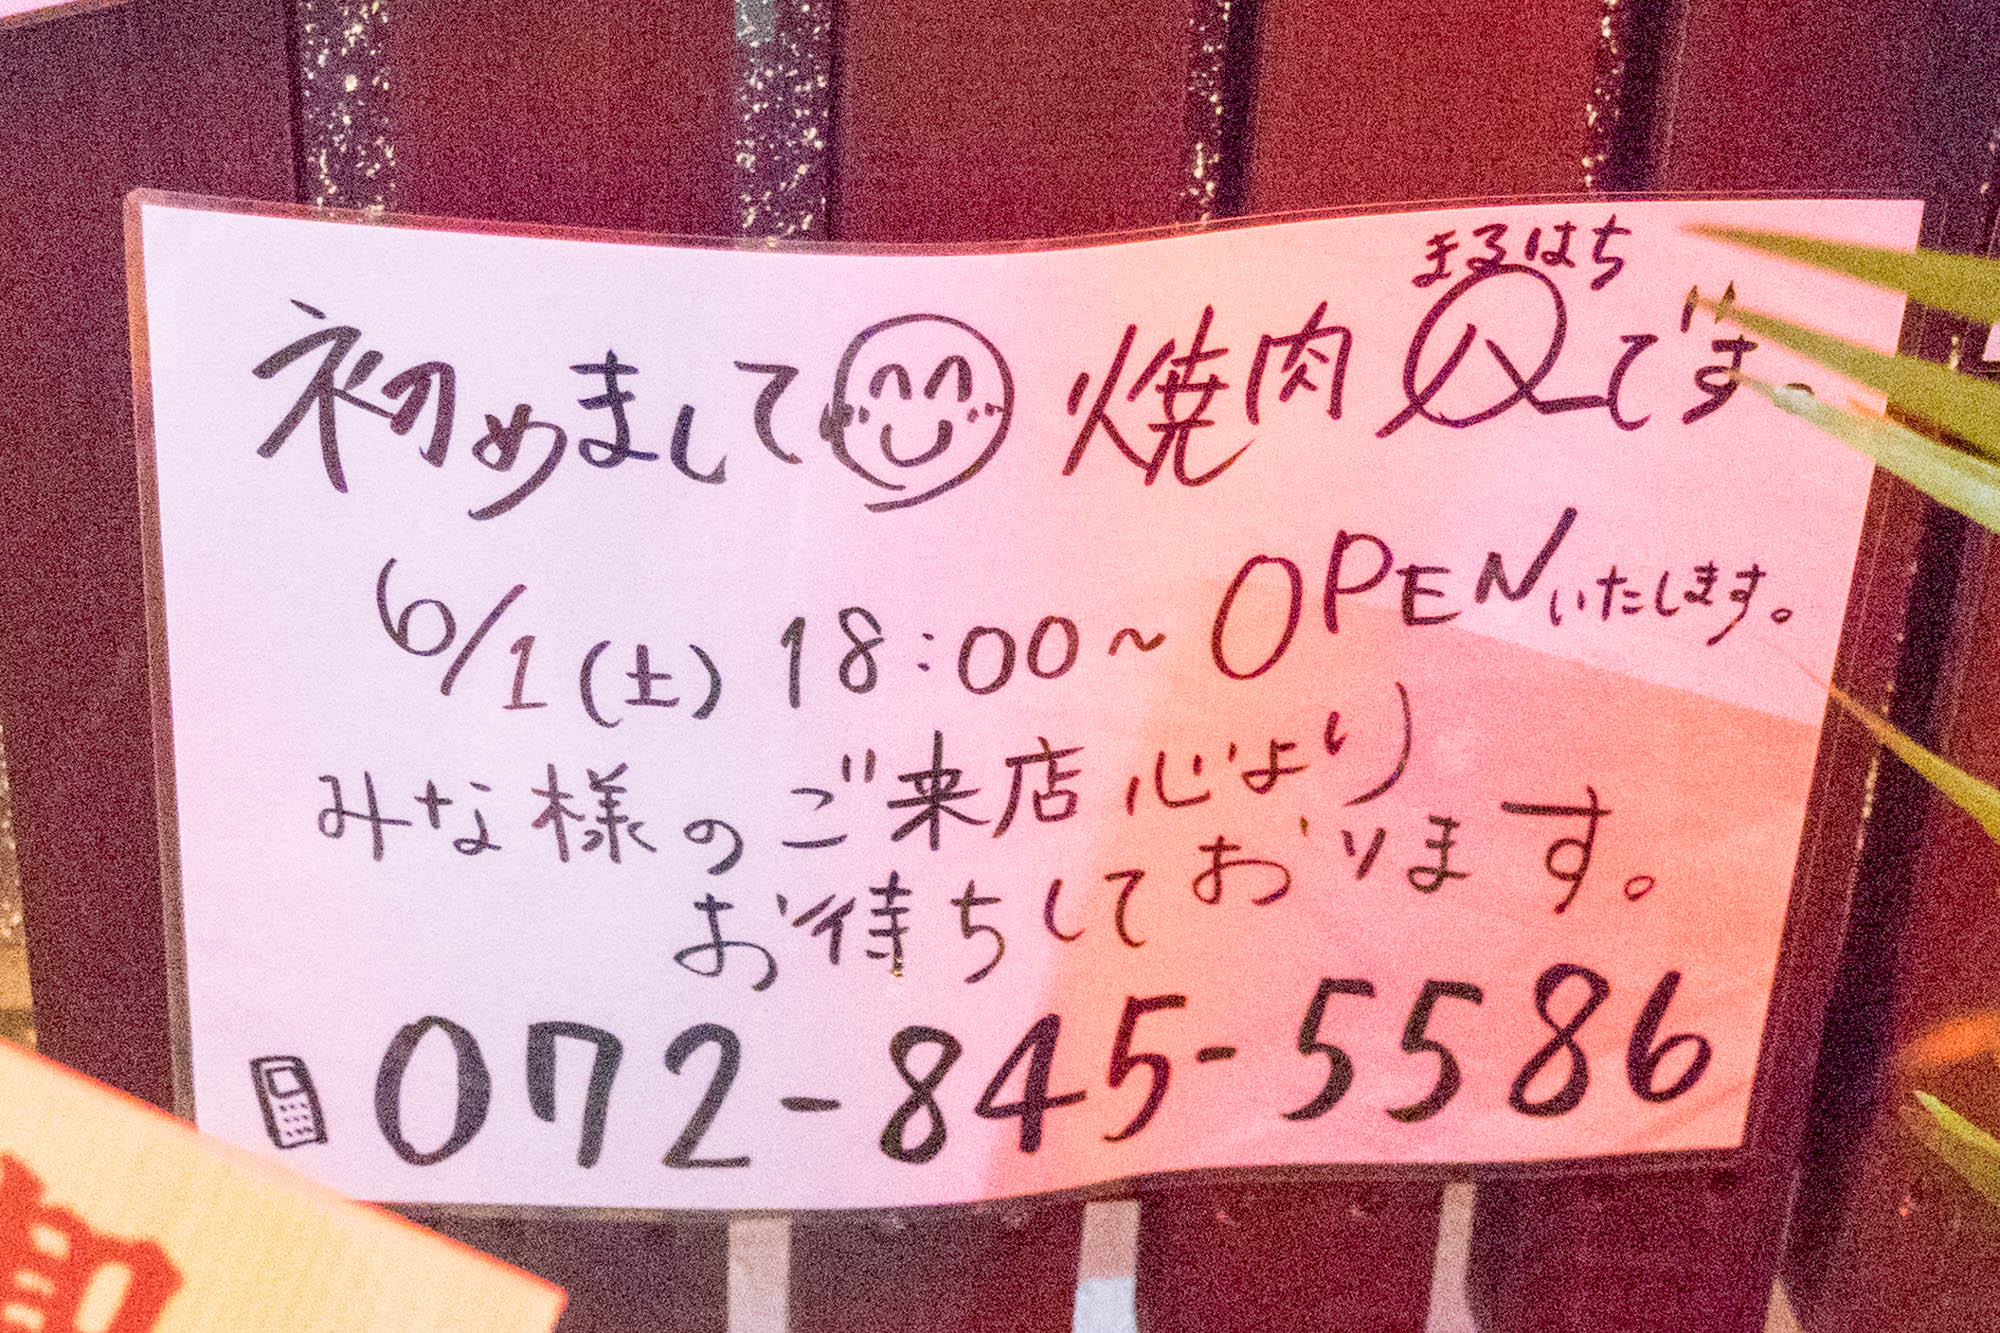 まるはち
初めまして 焼肉 ㊇です。
6/1(土) 18:00~ OPENいたします。
みな様のご来店心より
お待ちしております。
072-845-5586